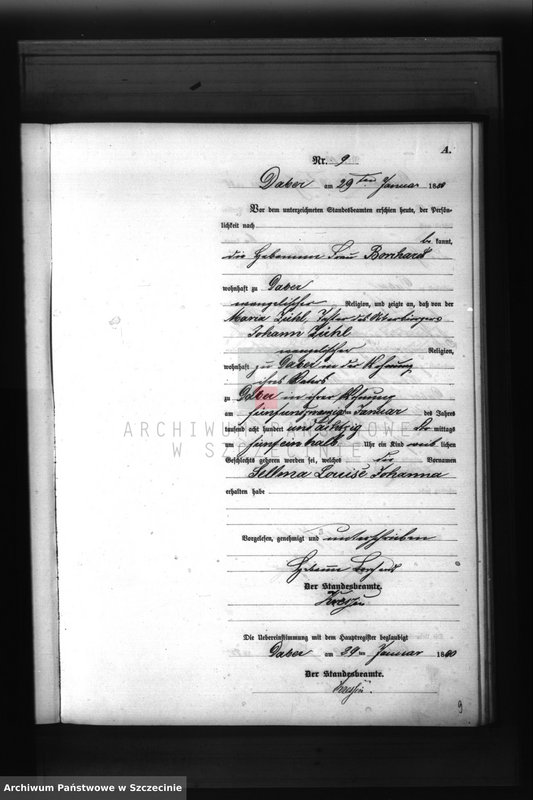 A.
Nr. 9
Daber am 29ten Januar 1880
Vor dem unterzeichneten Standesbeamten erschien heute, der Persön-
lichkeit nach
be kannt,
die Hebamme Frau Bornhardt
wohnhaft zu Daber
evangelischer Religion, und zeigte an, daß von der
Maria Zühl, Tochter des Ackerbürgers
Johann Zühl
evangelischer Religion,
wohnhaft zu Daber in der Wohnung
ihres Vaters
zu Daber in ihrer Wohnung
am fünfundzwanzigsten Januar des Jahres
tausend acht hundert und achtzig Vor mittags
um fünf einhalb Uhr ein Kind weib lichen
Geschlechts geboren worden sei, welches die Vornamen
Sellma Louise Johanna
erhalten habe
Vorgelesen, genehmigt und unterschrieben
Hebamme
Der Standesbeamte.
Die Uebereinstimmung mit dem Hauptregister beglaubigt
Daber am 29ten Januar 1880
Der Standesbeamte.
9
ARCHIWUM PAŃSTWOWE
W SZCZECINIE
Archiwum Państwowe w Szczecinie